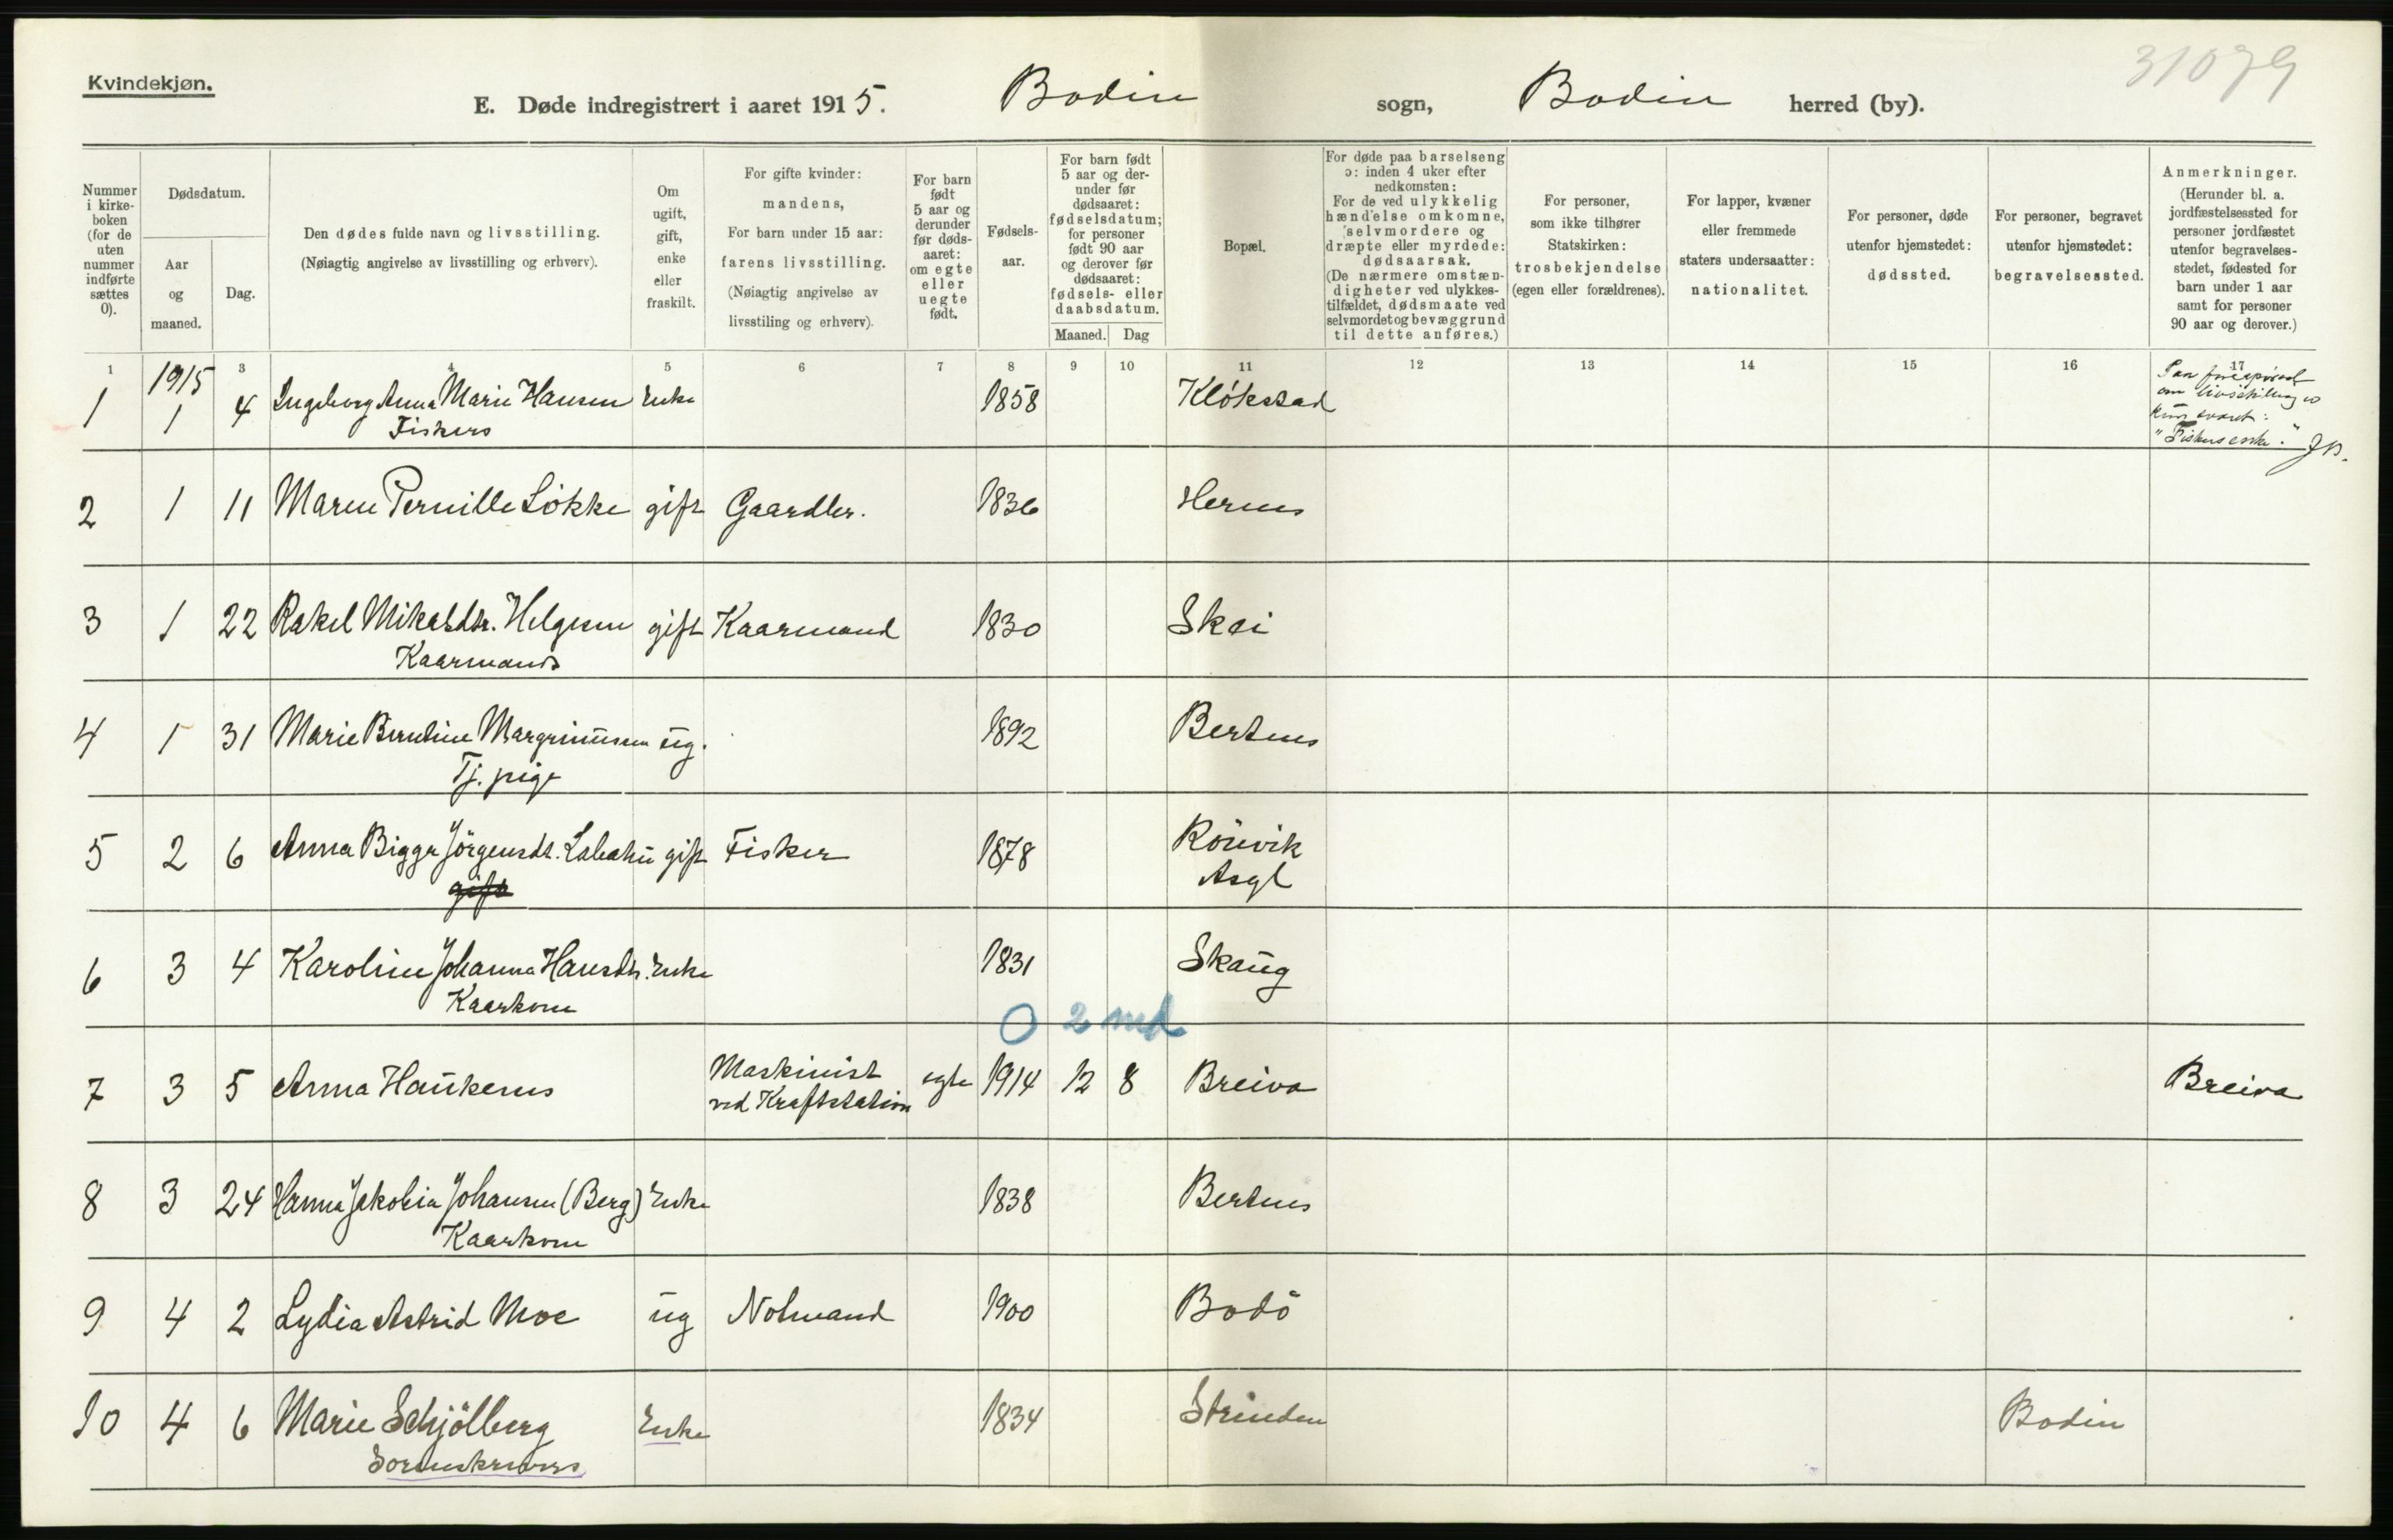 Kvindekjøn.
31079
E. Døde indregistrert i aaret 1915. Bodin sogn, Bodin herred (by).
Nummer i kirke- boken (for de uten nummer indførte sættes 0).
Dødsdatum.
Aar og maaned.
Dag.
Den dødes fulde navn og livsstilling.
(Nøiagtig angivelse av livsstilling og erhverv).
Om ugift, gift, enke eller fraskilt.
For gifte kvinder: mandens,
For barn under 15 aar: farens livsstilling.
(Nøiagtig angivelse av livsstiling og erhverv).
For barn født 5 aar og derunder før døds- aaret: om egte eller uegte født.
Fødsels- aar.
For barn født 5 aar og der- under før dødsaaret: fødselsdatum; for personer født 90 aar og derover før dødsaaret: fødsels- eller daabsdatum.
Maaned. Dag
Bopæl.
For døde paa barselseng ɔ: inden 4 uker efter nedkomsten:
For de ved ulykkelig hændelse omkomne, selvmordere og dræpte eller myrdede: dødsaarsak.
(De nærmere omstæn- digheter ved ulykkes- tilfældet, dødsmaate ved selvmordet og bevæggrund til dette anføres.)
For personer, som ikke tilhører Statskirken: trosbekjendelse (egen eller forældrenes).
For lapper, kvæner eller fremmede staters undersaatter: nationalitet.
For personer, døde utenfor hjemstedet: dødssted.
For personer, begravet utenfor hjemstedet: begravelsessted.
Anmerkninger.
(Herunder bl. a. jordfæstelsessted for personer jordfæstet utenfor begravelses- stedet, fødested for barn under 1 aar samt for personer 90 aar og derover.)
1 3 4 5 6 7 8 9 10 11 12 13 14 15 16 17
1915
1 1 4 Ingeborg Anna Marie Hansen Enke 1858 Klökstad
Fiskers
Paa forespörsel
om livsstilling
kun svaret:
"Fiskers enke."
2 1 11 Maren Pernille Lökke gift Gaardbr. 1836 Hernes
3 1 22 Rakel Mikalsdtr. Helgesen gift Kaarmand 1830 Skei
Kaarmands
4 1 31 Marie Berntine Margrinusen ug. 1892 Bertnes
Tj. pige
5 2 6 Anna Jörgensdt. gift Fisker 1878 Rönvik
gift Asyl
6 3 4 Karoline Johanna Hansdtr. Enke 1831 Skaug
Kaarkone
0 2 md
7 3 5 Anna Haukenes Maskinist egte 1914 12 8 Breiva Breiva
ved Kraftstation
8 3 24 Hanna Jakobia Johansen (Berg) Enke 1838 Bertnes
Kaarkone
9 4 2 Lydia Astrid Moe ug Notmand 1900 Bodö
10 4 6 Marie Schjölberg Enke 1834 Strinden Bodin
Sorenskrivers